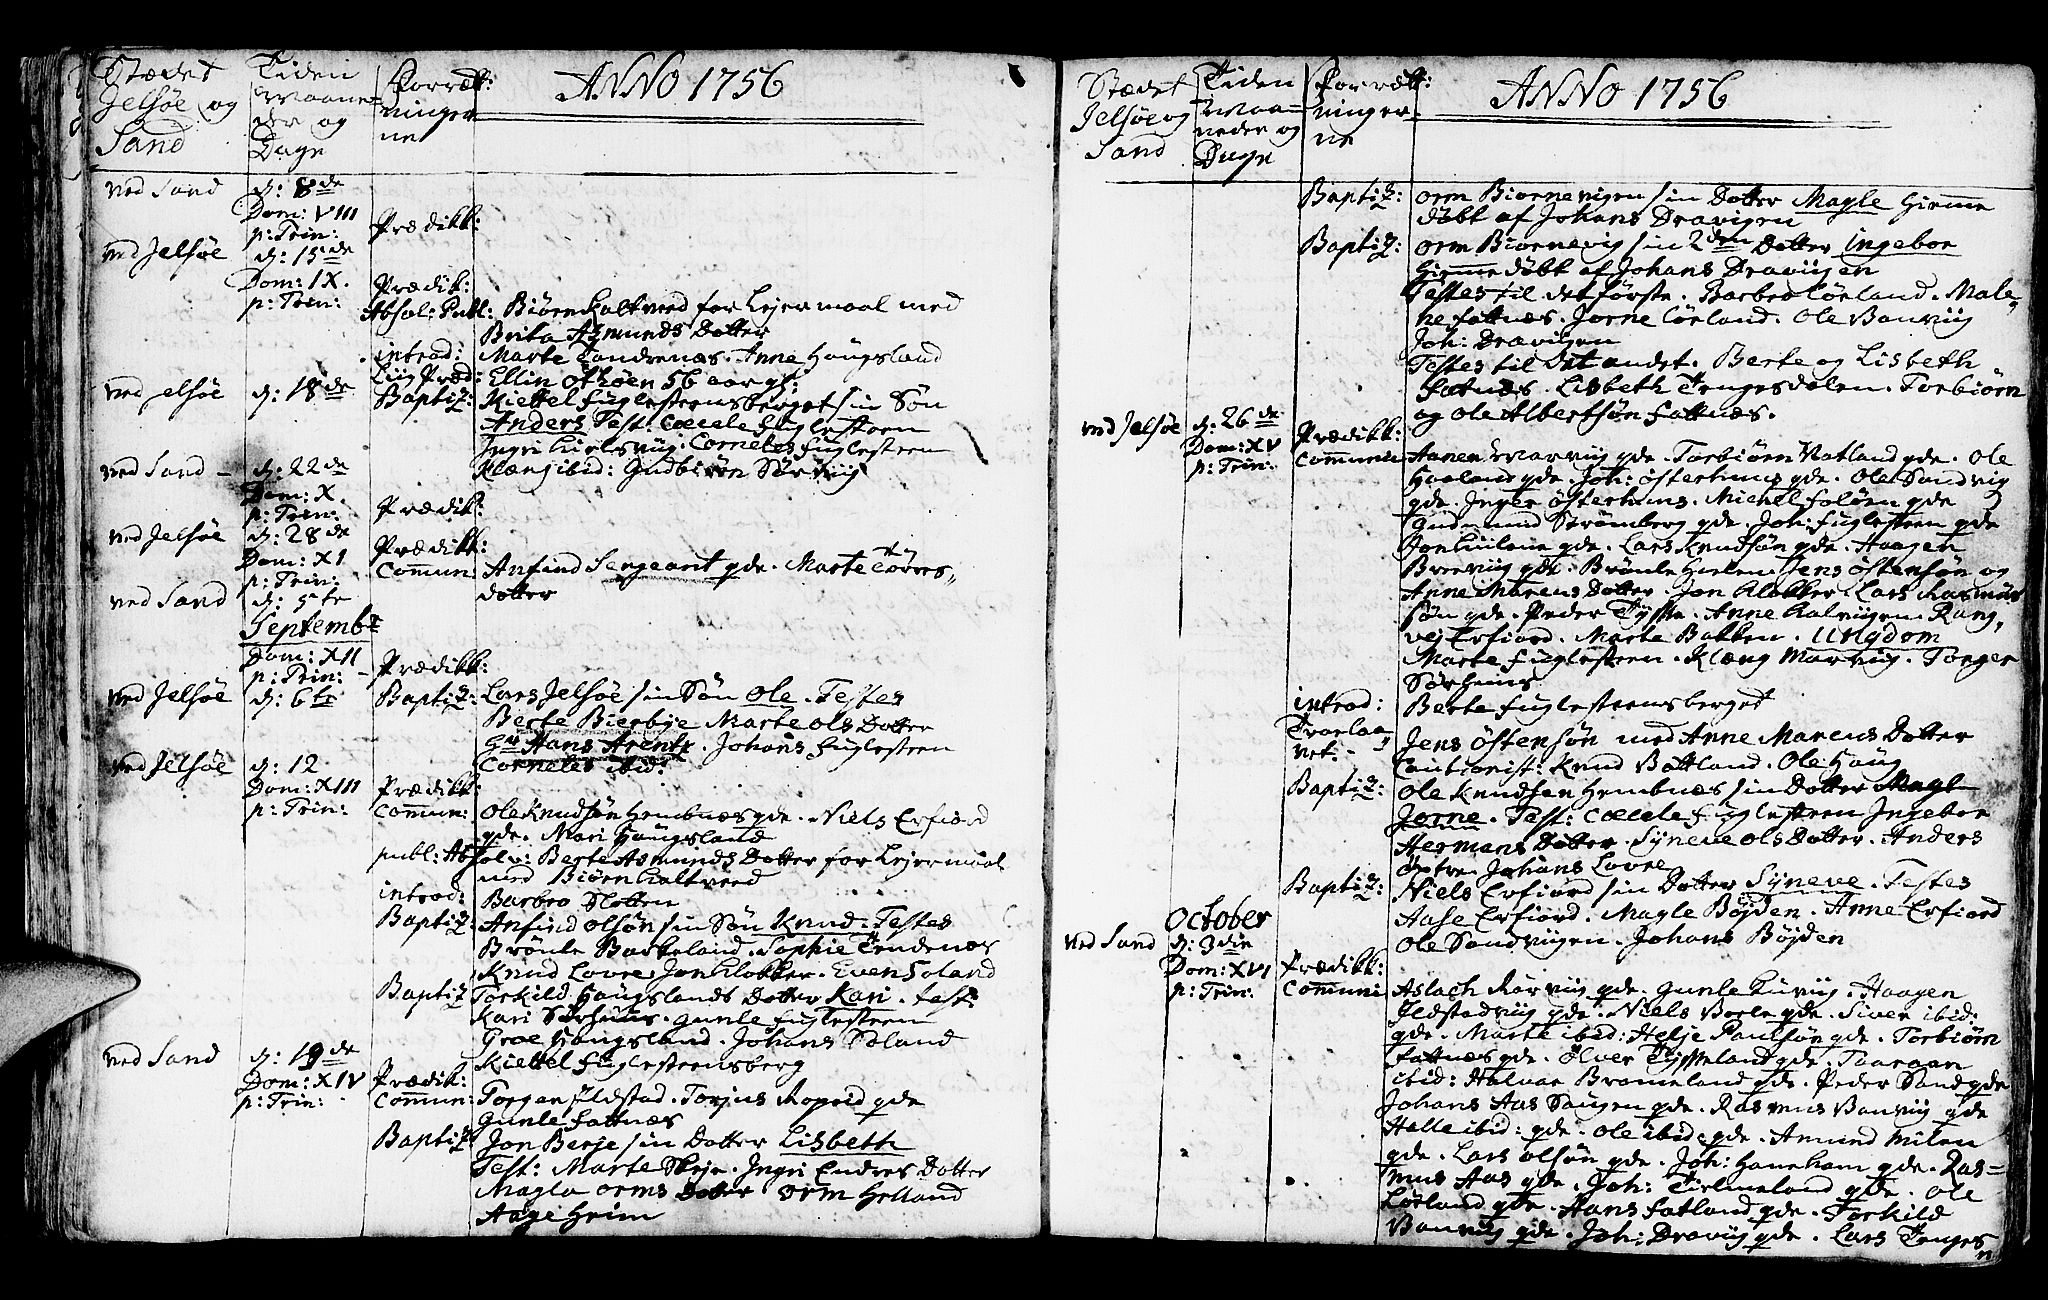 Stædet
Jelsøe og
Sand
Tiden
Maane=
der og
Dage
Forrett:
ninger
ne
ANNO 1756
ved Sand
d: 8de
Dom: VIII
p: Trin:
Prædikk:
ved Jelsøe
d: 15de
Dom: IX.
p: Trin:
Prædik:
Absol: Publ: Biørn Kaltveed for Lejermaal med
Brita Asmunds Dotter
introd: Marte Tendrenæs. Anne Haugsland
Liig Præd: Ellin 56 aar gl:
ved Jelsøe
d: 18de
Baptiz: Kiettel Fuglesteensberget sin Søn
Anders Test. Cæcele Fuglesteen
Ingri Corneles Fuglesteen
Klæng ibid: Gudbiørn Sørviig
ved Sand
d: 22de
Dom: X.
p: Trin:
Prædik:
ved Jelsøe
d: 28de
Dom: XI
p: Trin:
Prædikk:
Commun: Anfind Sergeant qde. Marte Tørres„
dotter
ved Sand
d: 5te
Septembr
Dom: XII
p: Trin:
Prædikk:
ved Jelsøe
d: 6te
Baptiz: Lars Jelsøe sin Søn Ole. Testes
Berte Bierbye Marte Ols Dotter
Hr Hans Arentz. Johans Fuglesteen
Corneles ibid:
ved Jelsøe
d: 12
Dom: XIII
p: Trin:
Prædikk:
Commun: Ole Knudsøn Hembnæs qde. Niels Erfiord
qde. Mari Haugsland
publ: Absolv: Berte Asmunds Dotter for Lejermaal
med Biørn Kaltveed
introd: Barbro Flotten
Baptiz: Anfind Olsøn sin Søn Knud. Testes
Brønle Barkeland. Sophie Tendenæs
Knud Lovre. Jon Klokker. Even Soland
Baptiz Torkild Haugslands Dotter Kari. Test:
Kari Sørheims. Gunle Fuglesteen
Groe Haugsland. Johans Soland
Kiettel Fuglesteensberg
ved Sand
d: 19de
Dom: XIV
p: Trin:
Prædik:
Commun: Torger Ilstad. Torjus Ropeid qde
Gunle Fattnæs
Baptiz Jon Berje sin Dotter Lisbeth
Test: Marte Skeje. Ingri Endres Dotter
Magla Orms Dotter Orm Helland
Aage Heim
Stædet
Jelsøe og
Sand
Tiden
Maa=
neder og
Dage
Forrett:
ninger
ne
ANNO 1756
Baptiz: Orm Biørnevigen sin Dotter Magle hieme
døbt af Johans Dravigen
Baptiz: Orm Biørnevig sin 2den Dotter Ingebor
hieme døbt af Johans Draviigen
Testes til det første. Barbro Lørland. Male„
ne Fattnæs. Jorne Lørland. Ole Vanviig
Joh: Draviigen
Testes til det andet. Berte og Lisbeth
Fattnæs. Lisbeth Tengesdalen. Torbiørn
og Ole Albertsøn Fattnæs.
ved Jelsøe
d: 26de
Dom: XV
p: Trin:
Prædikk:
Commun: Aanen Marviig qde. Torbiørn Vatland qde. Ole
Haaland qde. Joh: Østerhuus qde. Ole Sandvig
qde. Inger Østerhuus. Michel Foløen qde
Gudmund Strømberg qde. Joh: Fuglesteen qde
Jon qde. Lars Knudsøn qde. Haagen
Breviig qde. Brønle Jens Østensøn og
Anne Marens Dotter. Jon Klokker Lars Rasmus
søn qde. Peder Tysse. Anne Kalviigen Rang„
vej Erfiord. Marte Bakken. Ungdom
Marte Fuglesteen. Klæng Marvig. Torger
Sørheims
introd: Berte Fuglesteensberget
Troelaa„
vet. Jens Østensøn med Anne Marcus Dotter
Cautionist: Knud Bøttland. Ole Haug
Baptiz: Ole Knudsen Hembnæs sin Dotter Magl
Jorne. Test: Cæcele Fuglesteen Ingebor
Hermans Dotter. Syneve Ols Dotter. Anders
Østre. Johans Lovre
Baptiz: Niels Erfiord sin Dotter Syneve. Testes
Aase Erfiord. Magle Bøjden. Anne Erfiord
Ole Sandviigen. Johans Bøjden
October
ved Sand
d: 3die
Dom: XVI
p: Trin:
Prædikk:
Commun: Aslach Rørviig qde. Gunle Haagen
Ilstadviig qde. Niels Berle qde. Siver ibid:
qde. Marte ibid: Helje Paulsøn qde. Torbiørn
Fattnæs qde. Ølver Tysseland qde. Taaraan
ibid: Halvar Brommeland qde. Peder Sand qde
Johans Aas Saugen qde. Rasmus Vanviig qde
Helle ibid: qde. Ole ibid: qde. Amund Milen
qde. Lars Olsøn qde. Joh: Haneham qde. Ras=
mus Aas qde. Joh: Tielmeland qde. Ole
Lørland qde. Hans Fatland qde. Torkild
Vanviig qde. Joh: Draviig qde. Lars Tenges